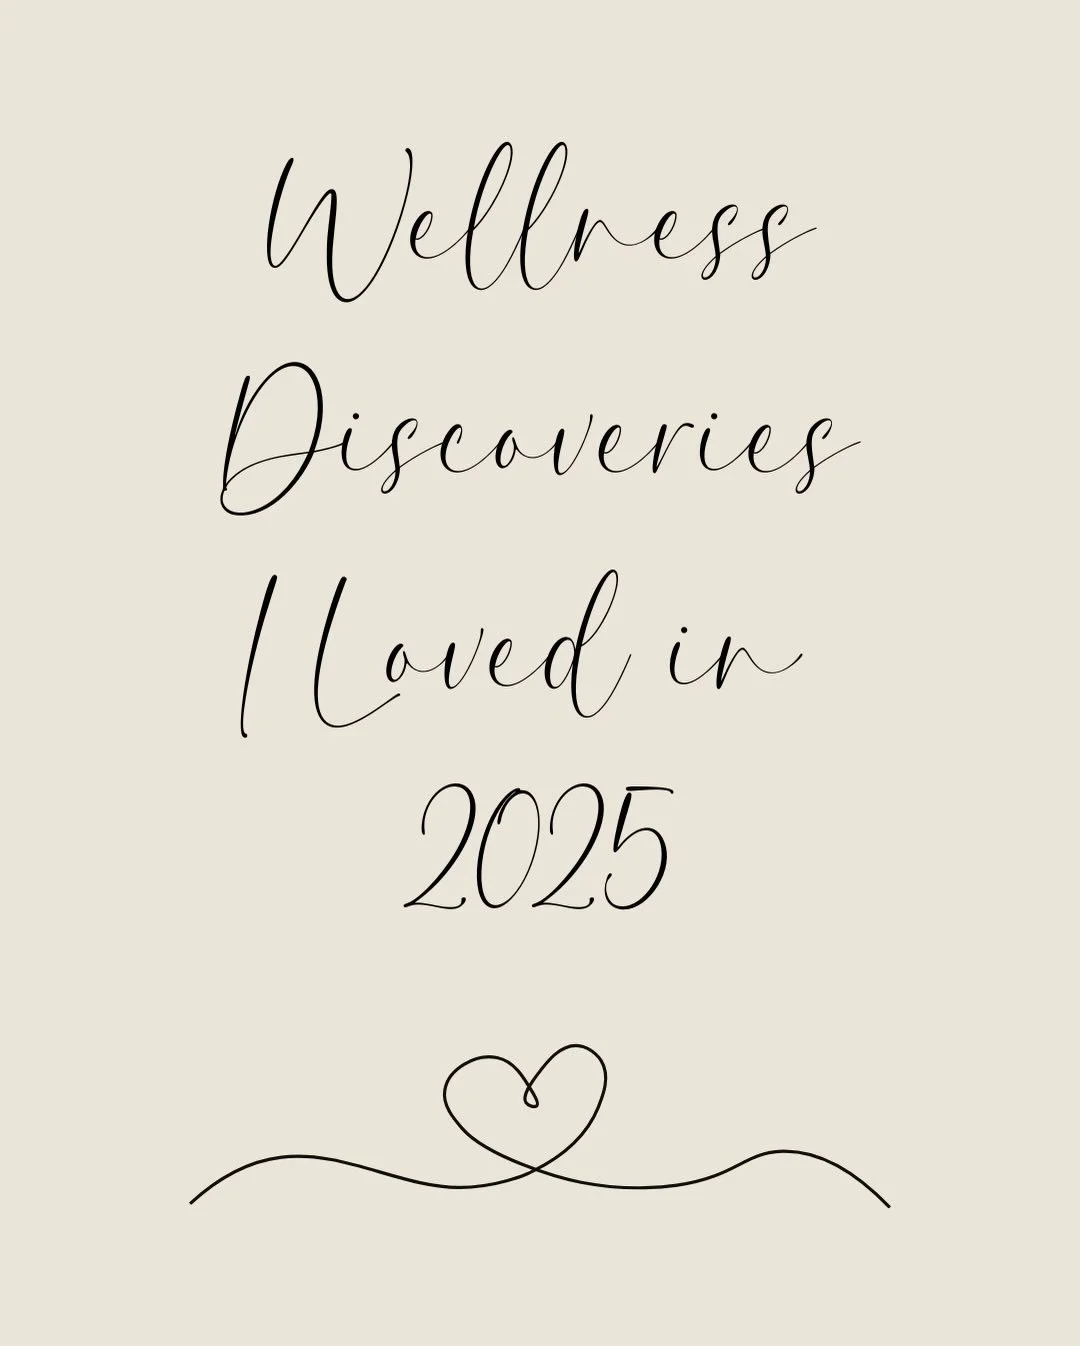 Wellness
Discoveries
I Loved in
2025